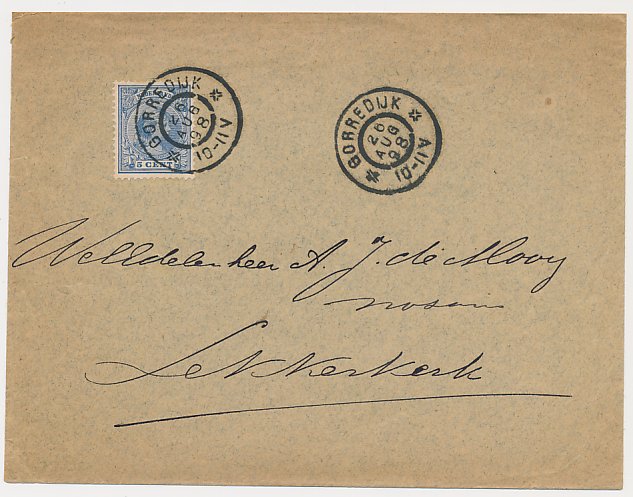 GORREDIJK
26
AUG
98
10-11V
5 CENT
GORREDIJK
26
AUG
98
10-11
WelEdelenheer A. J. de Mooy
Lekkerkerk